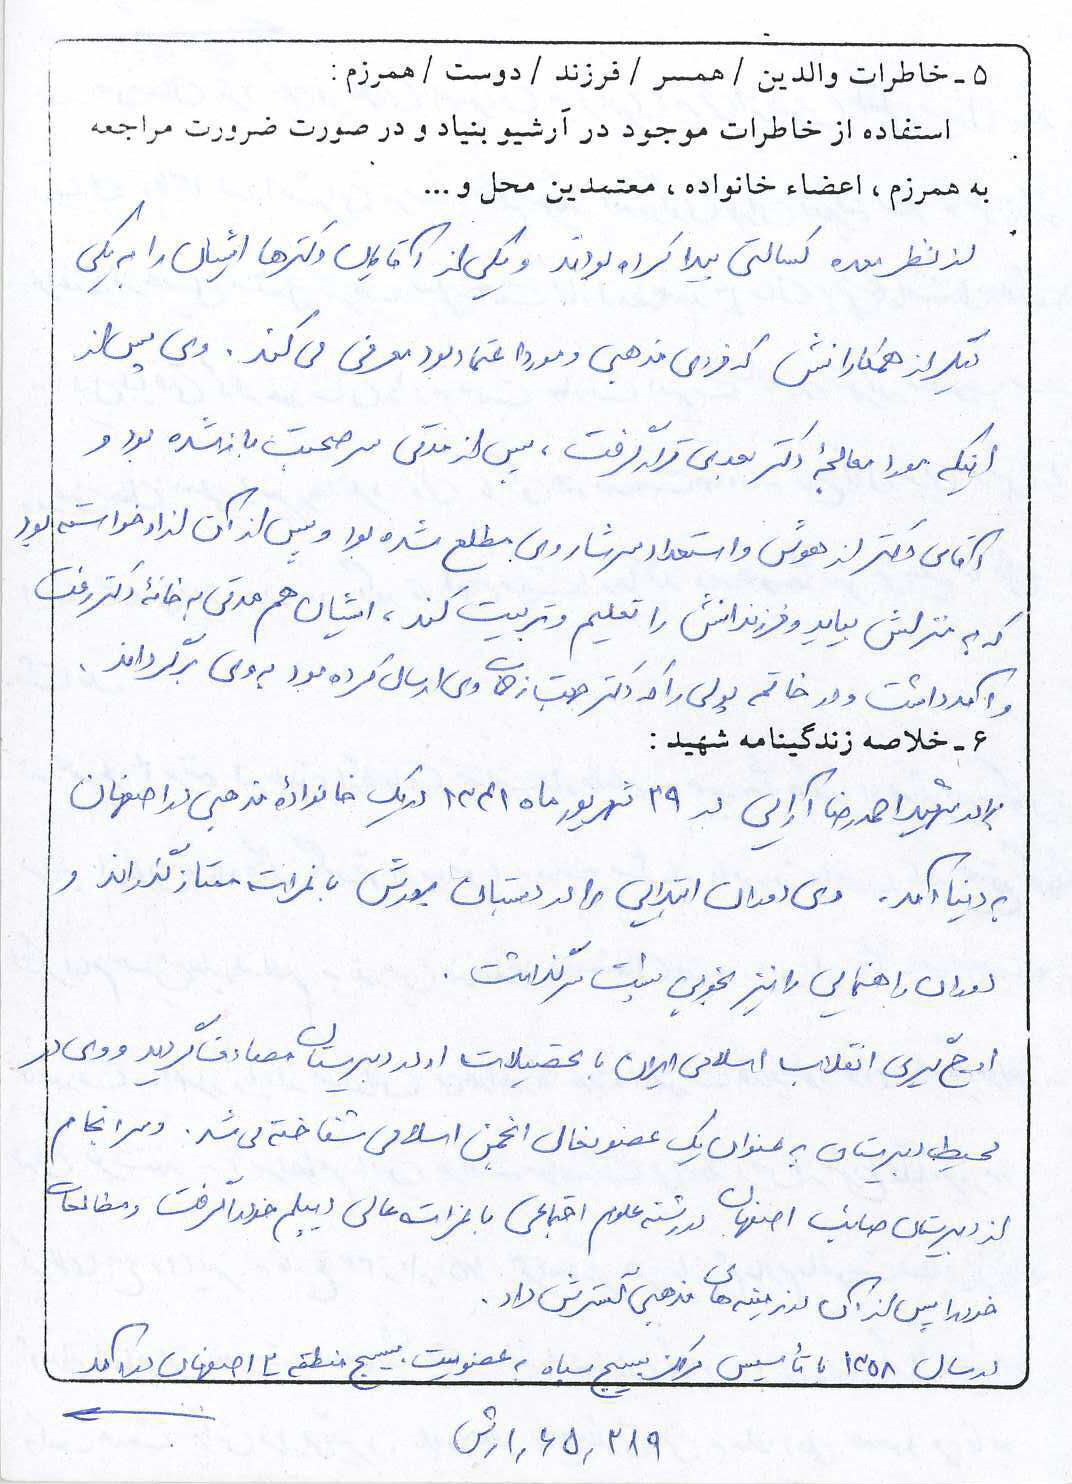 ۵ ـ خاطرات والدین / همسر / فرزند / دوست / همرزم :
استفاده از خاطرات موجود در آرشیو بنیاد و در صورت ضرورت مراجعه
به همرزم ، اعضاء خانواده ، معتمدین محل و ...
از نظر معده کسالتی پیدا کرده بودند و یکی از آقایان دکترها ایشان را به یکی
دیگر از همکارانش که فردی مذهبی و مورد اعتماد بود معرفی می کند . وی پس از
اینکه مورد معالجهٔ دکتر بعدی قرار گرفت ، پس از مدتی سر صحبت باز شده بود و
آقای دکتر از هوش و استعداد سرشار وی مطلع شده بود و پس از آن از او خواسته بود
که به منزلش بیاید و فرزندانش را تعلیم و تربیت کند ، ایشان هم مدتی به خانهٔ دکتر رفت
و آمد داشت و در خاتمه پولی را که دکتر جهت زحمات وی ارسال کرده بود به وی برگرداند .
۶ ـ خلاصه زندگینامه شهید :
برادر شهید احمدرضا آرایی در ۲۹ شهریور ماه ۱۳۴۱ در یک خانوادهٔ مذهبی در اصفهان
به دنیا آمد . وی دوران ابتدایی را در دبستان پرورش با نمرات ممتاز گذراند و
دوران راهنمایی را نیز بخوبی پشت سر گذاشت .
اوج گیری انقلاب اسلامی ایران با تحصیلات او در دبیرستان مصادف گردید و وی در
محیط دبیرستان به عنوان یک عضو فعال انجمن اسلامی شناخته می شد . و سرانجام
از دبیرستان صائب اصفهان در رشته علوم اجتماعی با نمرات عالی دیپلم خود را گرفت و مطالعات
خود را پس از آن در زمینه های مذهبی گسترش داد .
در سال ۱۳۵۸ با تأسیس مرکز بسیج سپاه به عضویت بسیج منطقه ۲ اصفهان درآمد